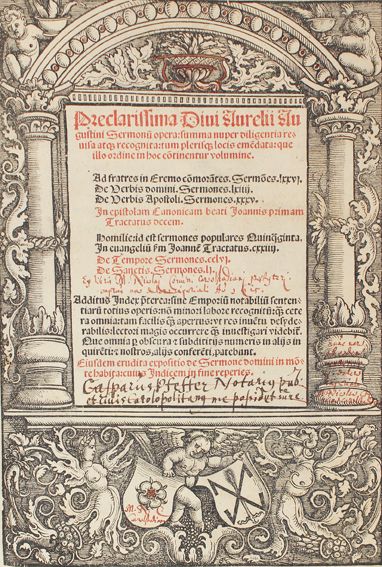 Preclarissima Divi Aurelii Au
gustini Sermonū opera: summa nuper diligentia re
visa atq₃ recognita: tum plerisq₃ locis emēdata: que
illo ordine in hoc cōtinentur volumine.
Ad fratres in Eremo cōmorātes. Sermōes. lxxvj.
De Verbis domini. Sermones. lxiiij.
De Verbis Apostoli. Sermones. xxxv.
In epistolam Canonicam beati Joannis primam
Tractatus decem.
Homilie: id est sermones populares Quinq̄ginta.
In euangeliū fm Joannē Tractatus. cxxiiij.
De Tempore Sermones. cclvj.
De Sanctis. Sermones. lj.
Additus Index p̄terea: sine Emporiū notabiliū senten-
tiarū totius operis: nō minori labore recogniti: q̄₃ cete
ra omnia: tam facilis q̄₃ apertus: vt res inuētu desyde-
rabilis: lectori magis occurrere q̄₃ inuestigari videāt̄.
Que omnia p̱ obscura & subdititijs numeris in alijs in
quirētis: nostros, alijs conferēti, patebunt.
Eiusdem erudita expositio de Sermone domini in mō-
te habita: cuius Indicem in fine reperies.
Casparus Pfeffer Notariꝰ pub.
et civis
me possidet iure.